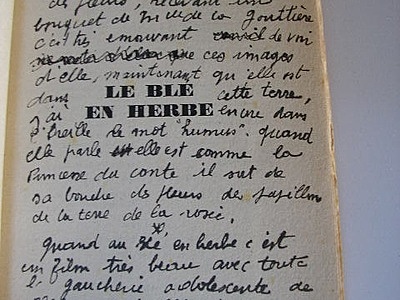 des fleurs, relevant un
bouquet de de la gouttière
c'est très émouvant de voir
que ces images
d'elle, maintenant qu'elle est
dans LE BLE cette terre,
j'ai EN HERBE encore dans
l'oreille le mot "humus". quand
elle parle elle est comme la
du conte il sort de
sa bouche des fleurs de papillon
de la terre de la rosée.
Quand au Blé en herbe c'est
un film très beau avec toute
la gaucherie adolescente de